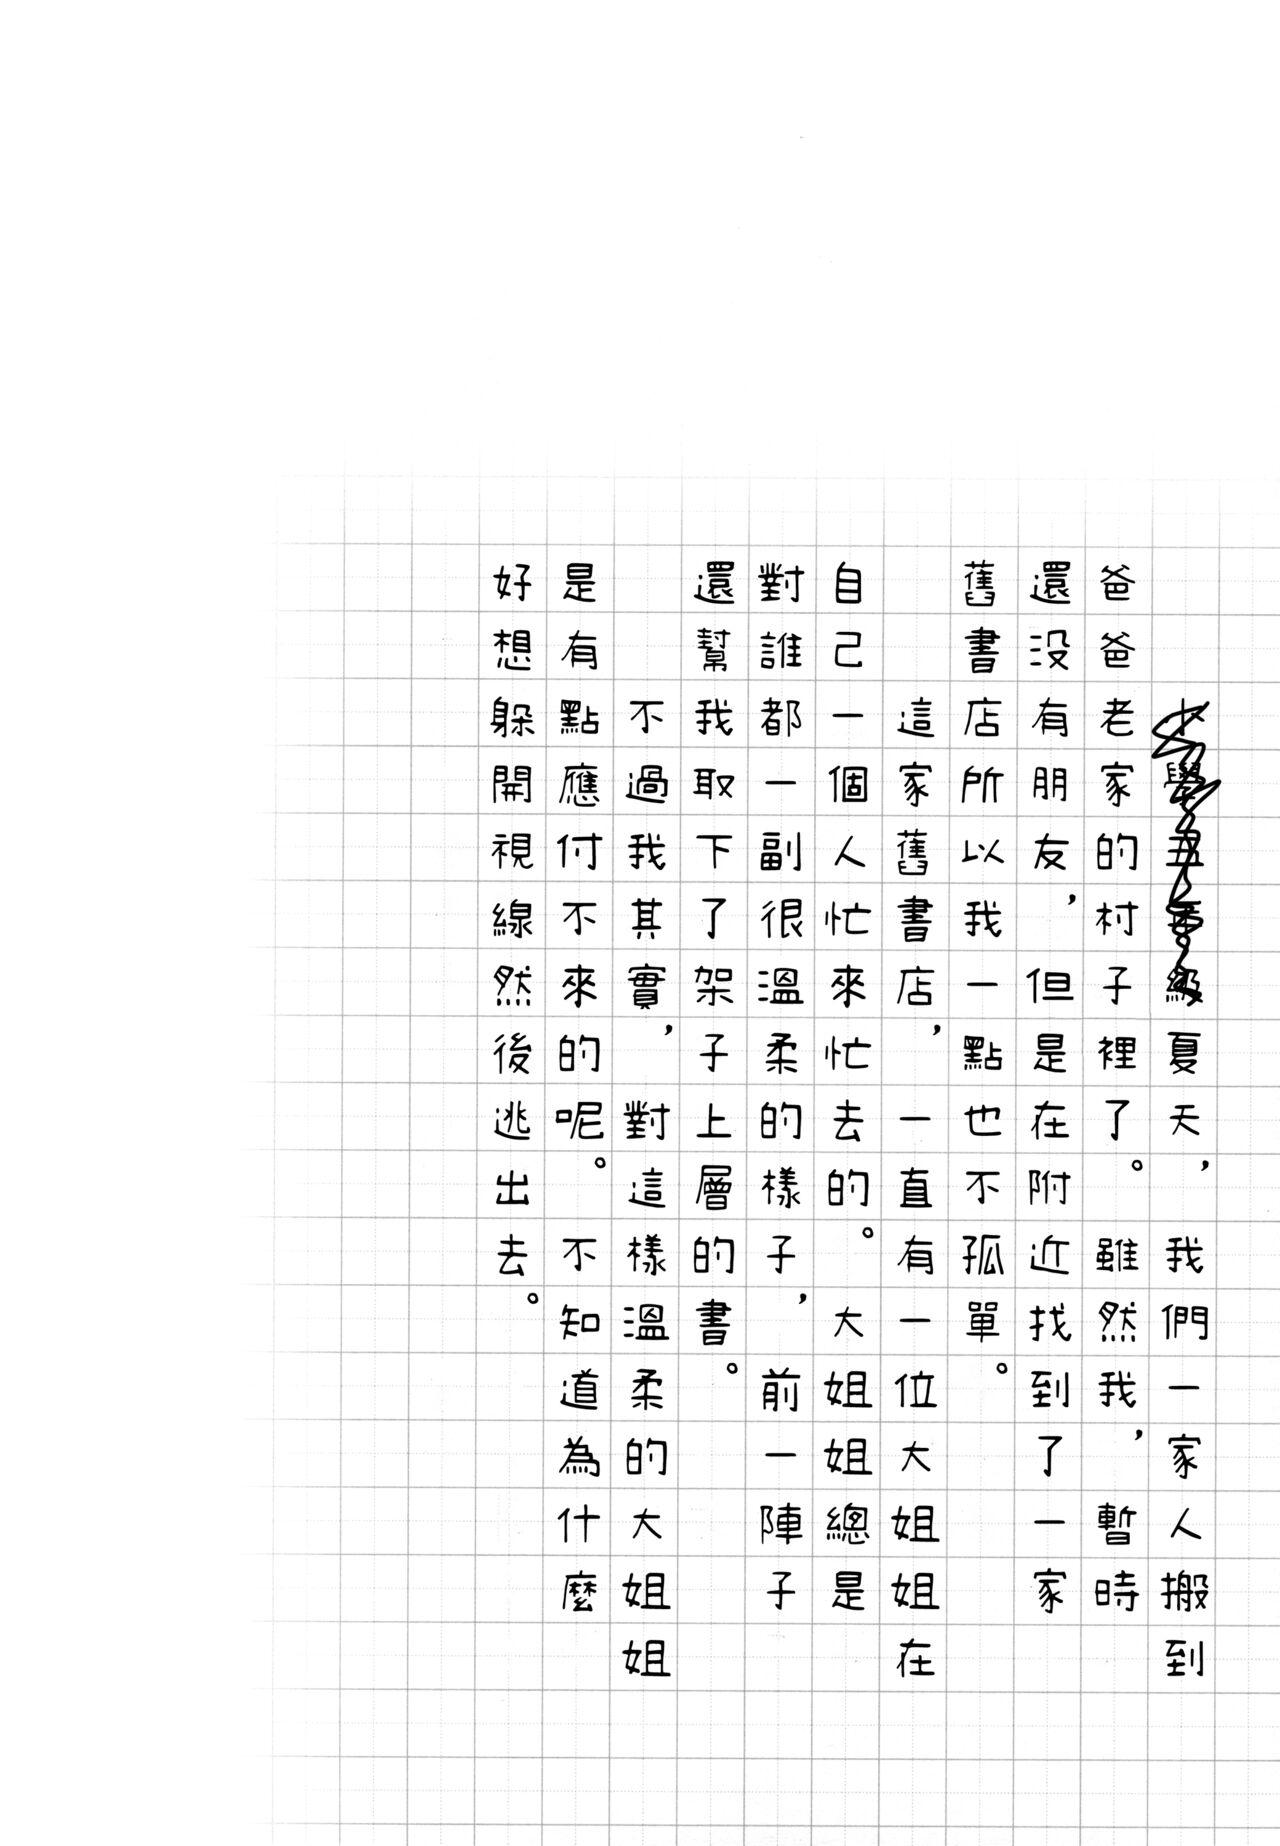 小學五年級夏天，我們一家人搬到
爸爸老家的村子裡了。雖然我，暫時
還没有朋友，但是在附近找到了一家
舊書店所以我一點也不孤單。
這家舊書店，一直有一位大姐姐在
自己一個人忙來忙去的。大姐姐總是
對誰都一副很溫柔的樣子，前一陣子
還幫我取下了架子上層的書。
不過我其實，對這樣溫柔的大姐姐
是有點應付不來的呢。不知道為什麼
好想躲開視線然後逃出去。